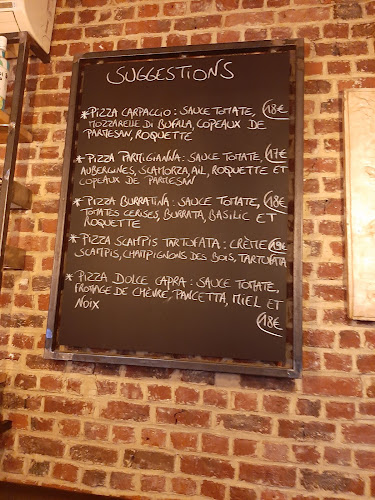 SUGGESTIONS
*PIZZA CARPACCIO : SAUCE TOMATE, 18€
MOZZARELLE DI BUFALA, COPEAUX DE
PARMESAN, ROQUETTE
*PIZZA PARMIGIANNA : SAUCE TOMATE, 17€
AUBERGINES, SCAMORZA, AIL, ROQUETTE ET
COPEAUX DE PARMESAN
*PIZZA BURRATINA : SAUCE TOMATE, 18€
TOMATES CERISES, BURRATA, BASILIC ET
ROQUETTE
*PIZZA SCAMPIS TARTUFATA : CRÈME 19€
SCAMPIS, CHAMPIGNONS DES BOIS, TARTUFATA
*PIZZA DOLCE CAPRA : SAUCE TOMATE,
FROMAGE DE CHÈVRE, PANCETTA, MIEL ET
NOIX
18€